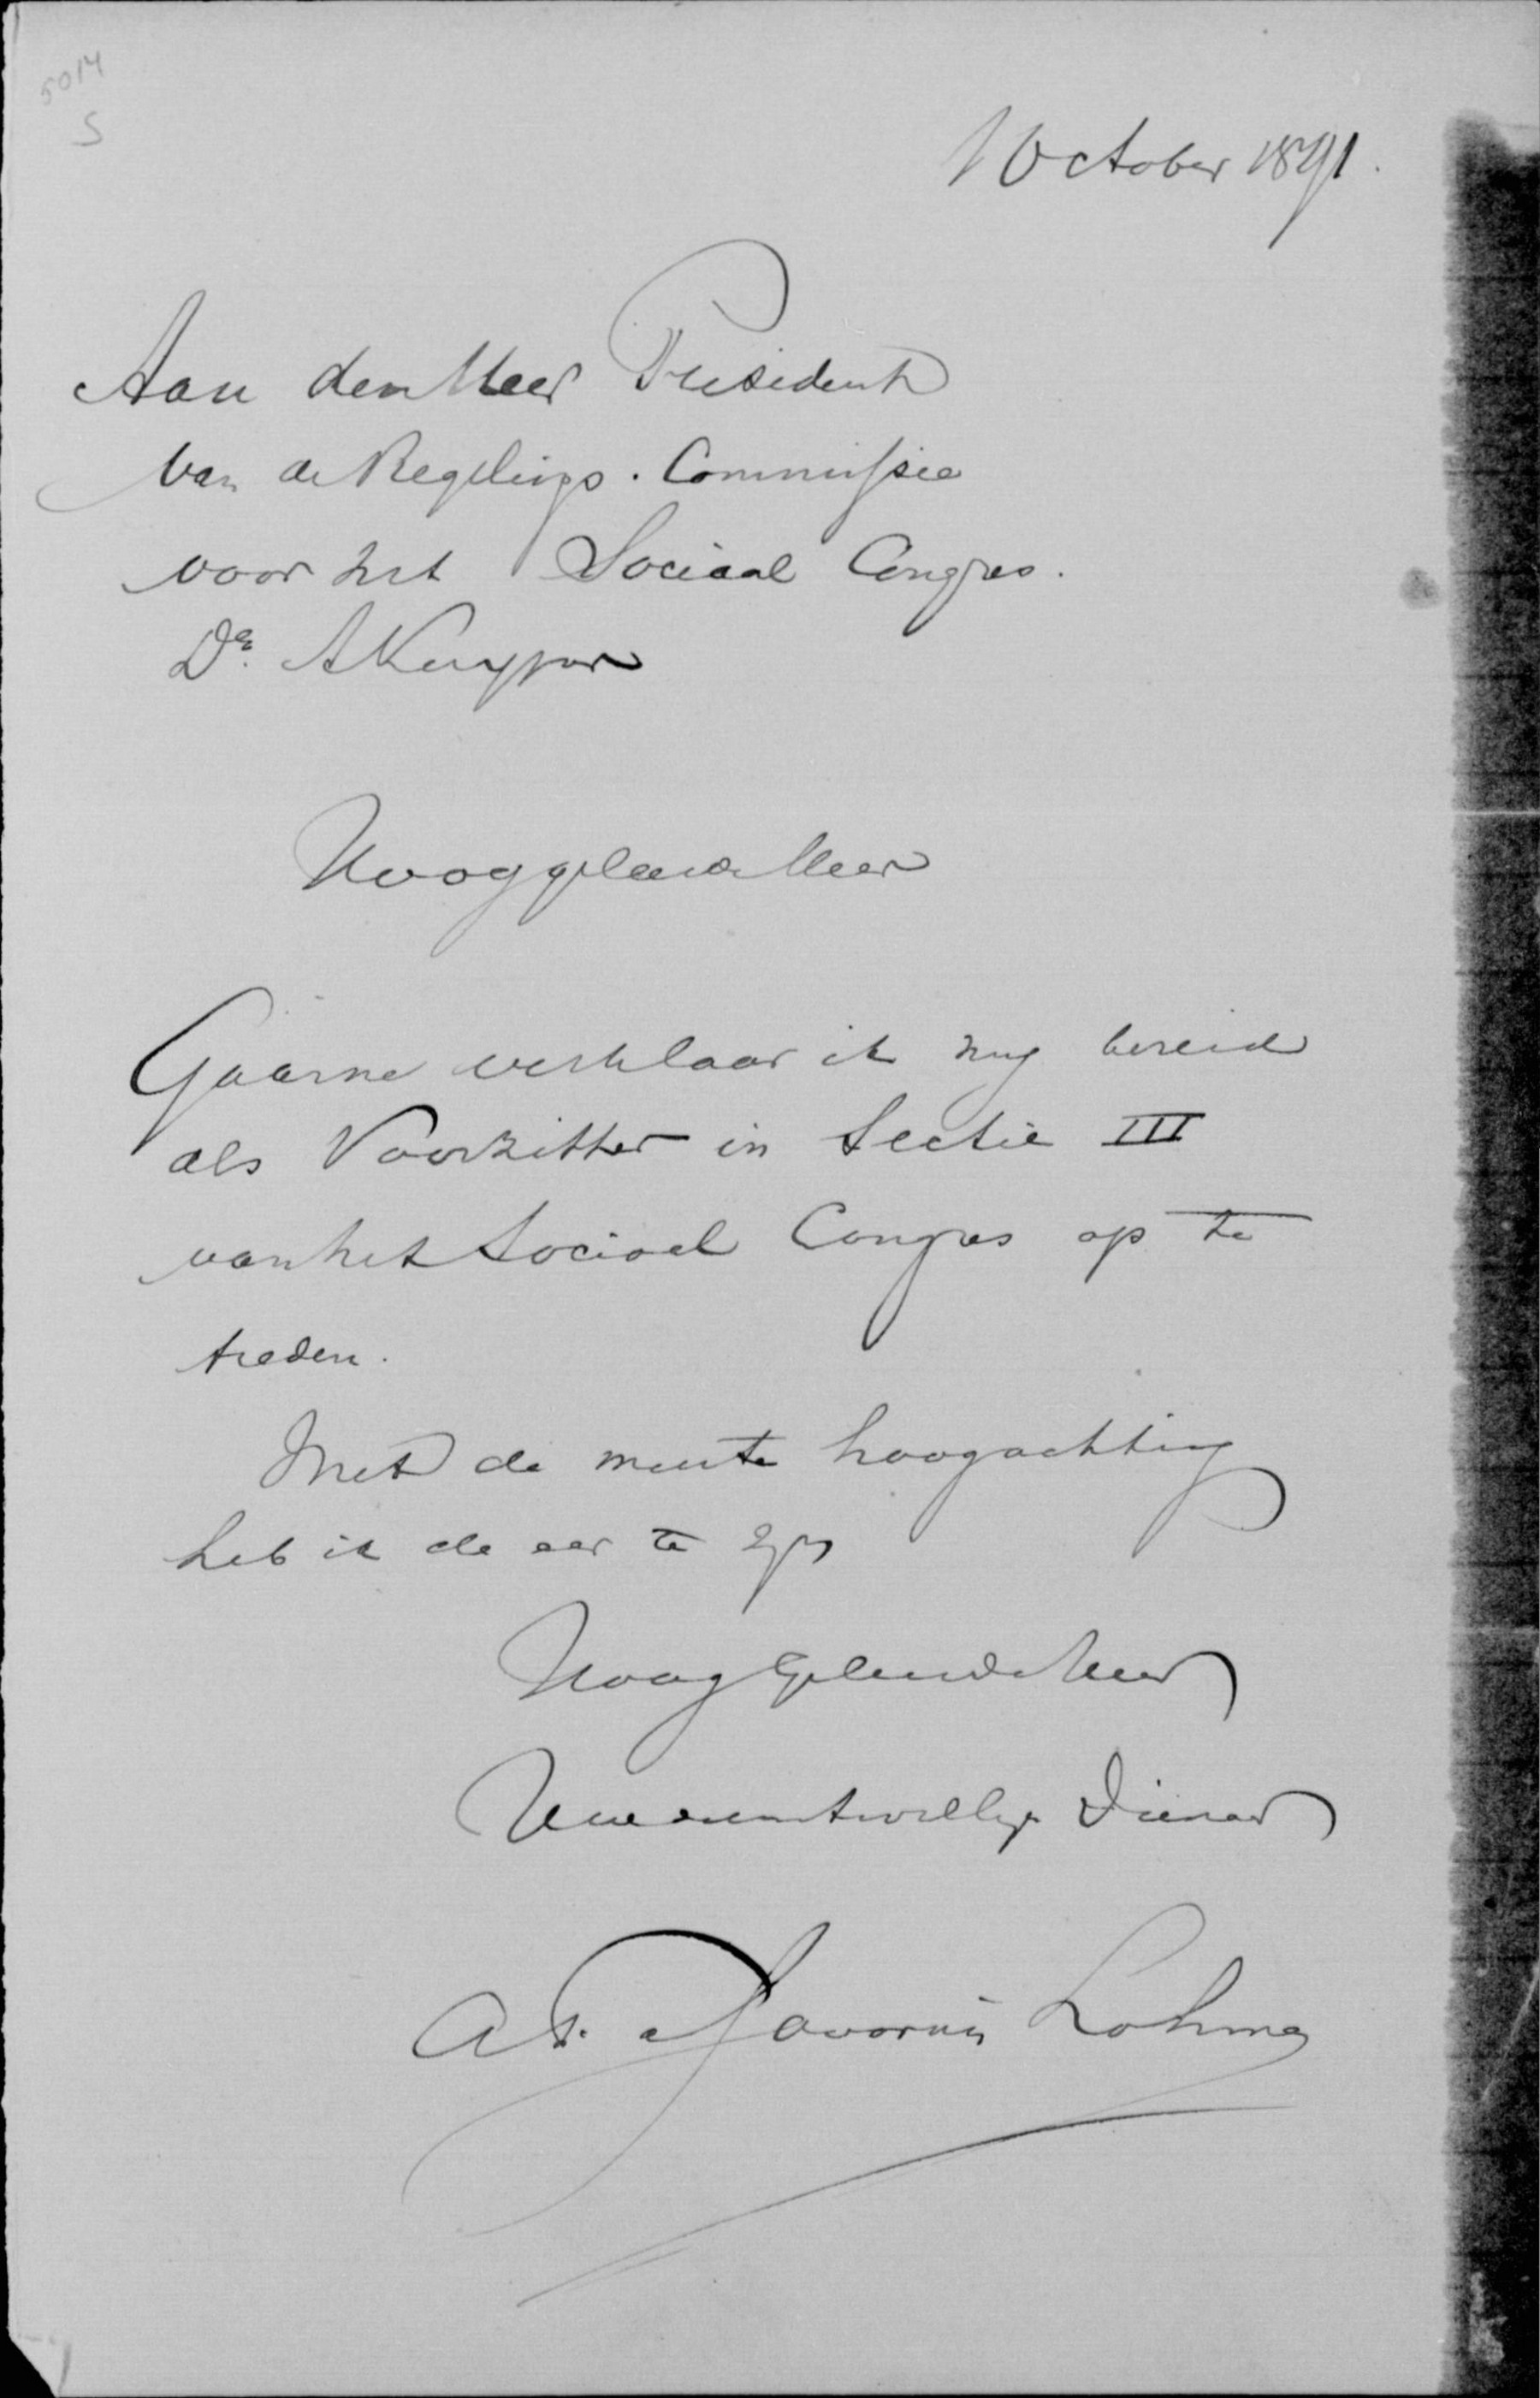 5014
S
1 October 1891.
Aan den Heer President
van de Regelings-Commissie
voor het Sociaal Congres.
Dr. A Kuyper
Hooggeleerde Heer
Gaarne verklaar ik mij bereid
als Voorzitter in Sectie III
van het Sociaal Congres op te
treden.
Met de meeste hoogachting
heb ik de eer te zijn
HoogGeleerde Heer
Uw dienstwillige Dienaar
A F de Savornin Lohman